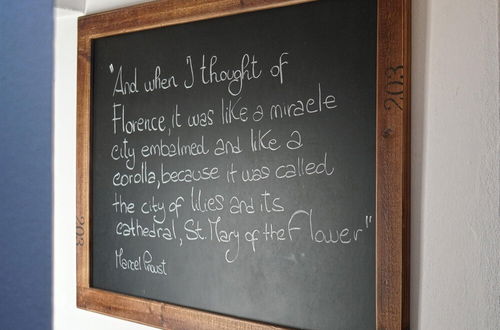 "And when I thought of
Florence, it was like a miracle
city embalmed and like a
corolla, because it was called
the city of lilies and its
cathedral, St. Mary of the Flower"
Marcel Proust
203
203